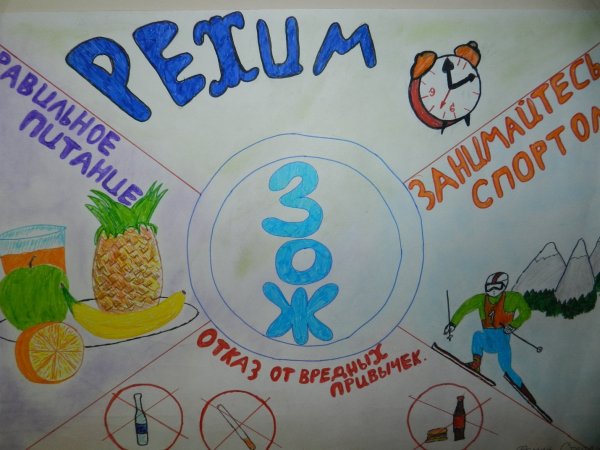 РЕЖИМ
РАВИЛЬНОЕ
ПИТАНИЕ
ЗАНИМАЙТЕСЬ
СПОРТОМ
ЗОЖ
ОТКАЗ ОТ ВРЕДНЫХ
ПРИВЫЧЕК.